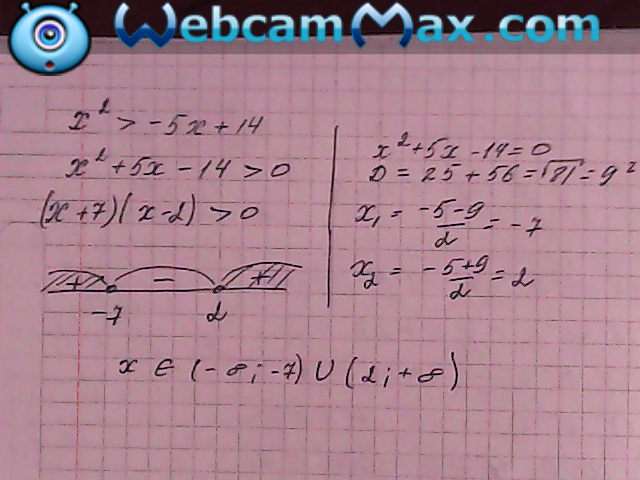 WebcamMax.com
x² > -5x+14
x²+5x-14>0
(x+7)(x-2)>0
+ - +
-7 2
x²+5x-14=0
D=25+56=√81=9²
x₁ = (-5-9)/2 = -7
x₂ = (-5+9)/2 = 2
x ∈ (-∞;-7) ∪ (2;+∞)